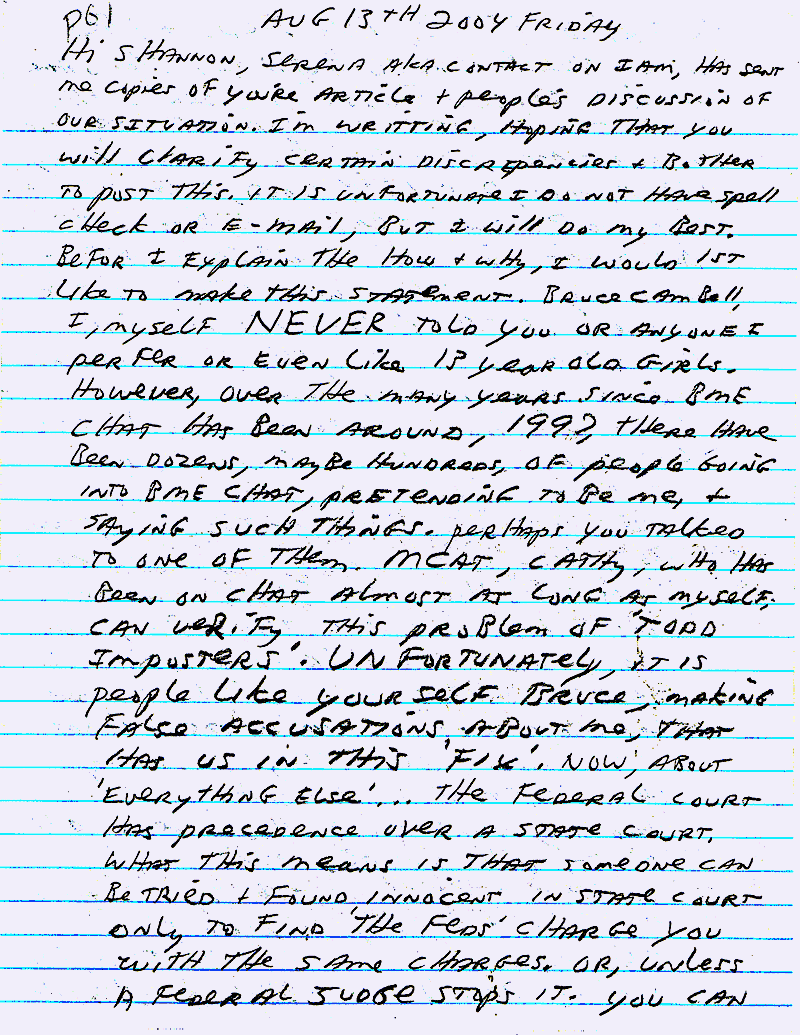 pG 1 AUG 13TH 2004 FRIDAY
Hi SHANNON, SERENA AKA CONTACT ON IAM, HAS SENT
me COPiES OF YOU'RE ARTiCLe + peopLe's DISCUSSION OF
OUR SITUATION. I'm WRITTING, HOPING THAT YOU
will CLARiFy CERTAIN DISCREPENCiES + BOTHER
TO POST THIS. IT IS UNFORTUNATE I DO NOT HAVE Spell
CHECK OR E-MAIL, BUT I will DO my BEST.
BEFOR I EXPLAIN THE HOW + wHy, I WOULD 1ST
LiKE TO MAKE THIS STATEMENT. BRUCE CAMBell,
I, myself NEVER TOLD YOU OR ANYONE I
PERFER OR EVEN LiKe 13 yeAR OLD GiRLS.
HOWEVER, OVER THE mANY yeARS SINCE BME
CHAT HAS BEEN AROUND, 1992, THERE HAVE
BEEN DOZENS, mAyBe HUNDREDS, OF peopLe GOING
INTO BME CHAT, PRETENDING TO Be me, +
SAYING SUCH THINGS. PERHAPS YOU TALKED
TO ONE OF THEM. MCAT, CATHy, WHO HAS
BEEN ON CHAT ALMOST AT LONG AS myself,
CAN VERiFy THIS PROBLEM OF 'TODD
ImposTERS'. UNFORTUNATELY, IT IS
peopLe LiKe YOURSELF BRUCE, mAKING
FALSE ACCUSATIONS ABOUT me, THAT
HAS US IN THIS 'FIX'. NOW, ABOUT
'EVERyTHING ELSE'... THE FEDERAL COURT
HAS PRECEDENCE OVER A STATE COURT.
WHAT THIS MEANS IS THAT SOMEONE CAN
Be TRIED + FOUND INNOCENT IN STATE COURT
ONLY TO FIND 'THE FEDS' CHARGE YOU
WITH THE SAME CHARGES. OR, UNLESS
A FEDERAL JUDGE STOPS IT. YOU CAN